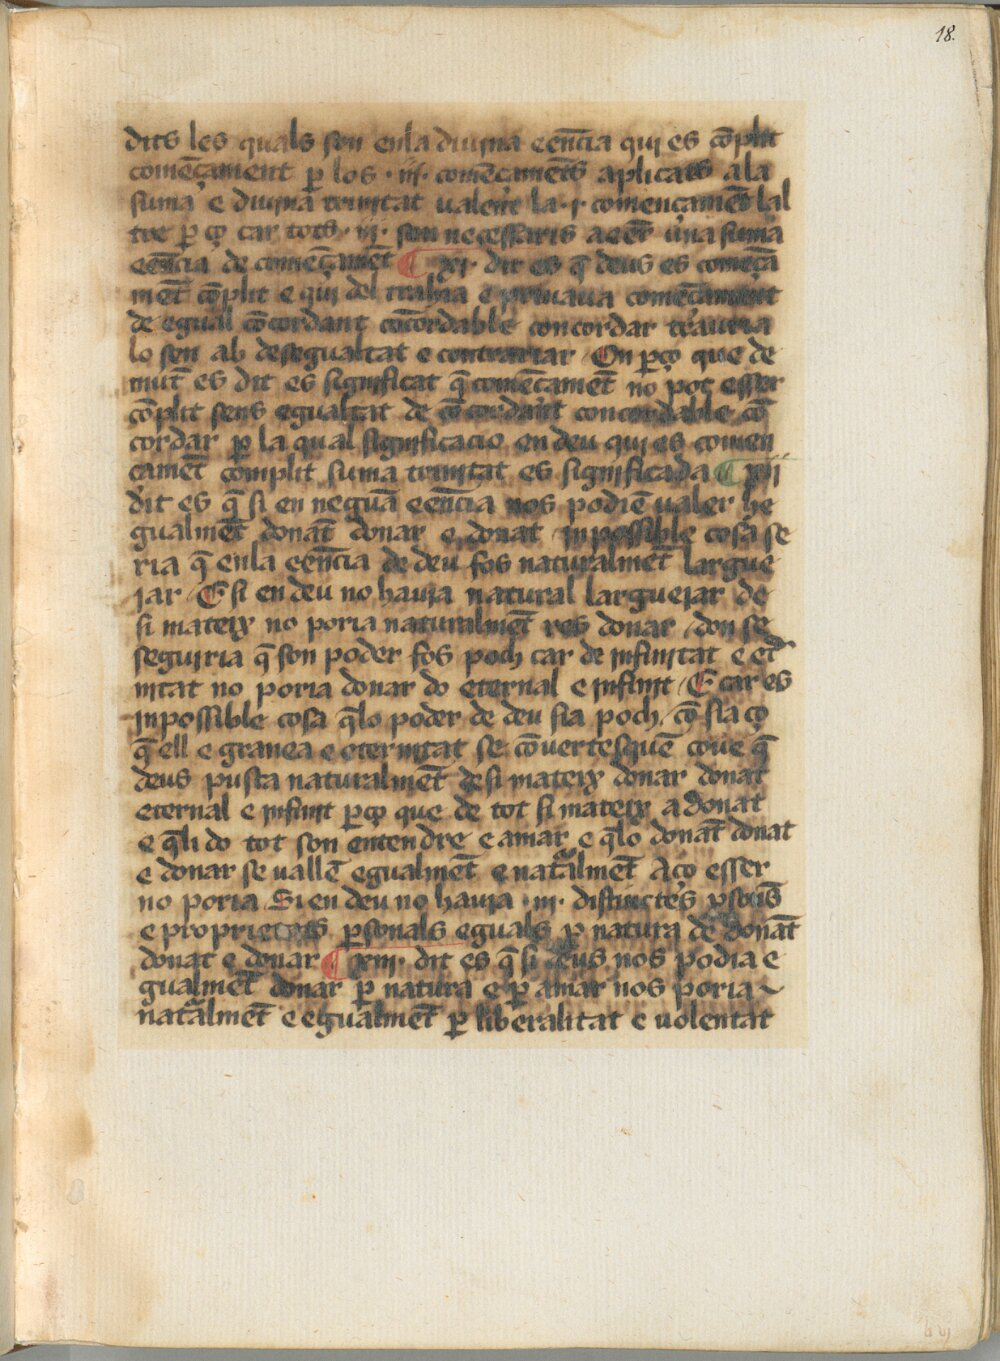 18.
dits les quals son en la diuina eēncia qui es cōplit
comēçament ꝑ los ·iij· comēçamēts aplicats ala
suma e diuina trinitat ualent la ·i· comensamēt lal
tre ꝑ ço car tots ·iij· son necessaris a eēr vna suma
eēncia de comēçamēt ¶ xj· dit es q̄ deus es comēça
mēt cōplit e qui del trahia e priuaua comēçament
de egual cōcordant cōcordable concordar trauria
lo seu ab desegualtat e contrariar On ꝑço que de
mūt es dit es significat q̄ comēçamēt no pot esser
cōplit sens egualtat de cōcordant concordable cō
cordar ꝑ la qual significacio en deu qui es comen
çamēt complit suma trinitat es significada ¶ xij
dit es q̄ si en neguā eēncia nos podiē ualer he
gualmēt donāt donar e donat inpossible cosa se
ria q̄ en la eēncia de deu fos naturalmēt largue
iar / E si en deu no hauia natural larguejar de
si mateix no poria naturalmēt res donar / don se
seguiria q̄ son poder fos poch car de infinitat e et̄
nitat no poria donar do eternal e infinit / E car es
inpossible cosa q̄lo poder de deu sia poch / cō sia ço
q̄ ell e granea e eternitat se cōuertesquē coue q̄
deus pusca naturalmēt de si mateix donar donat
eternal e infinit ꝑço que de tot si mateix a donat
e q̄li do tot son entendre e amar e q̄lo donāt donat
e donar se uallē egualmēt e nat̄almēt Aço esser
no poria Si en deu no hauia ·iij· distinctes ꝑsōns
e proprietats ꝑsonals eguals ꝑ natura de donāt
donat e donar ¶ xiij· dit es q̄ si deus nos podia e
gualmēt donar ꝑ natura e ꝑ amar nos poria
nat̄almēt e egualmēt ꝑ liberalitat e uolentat